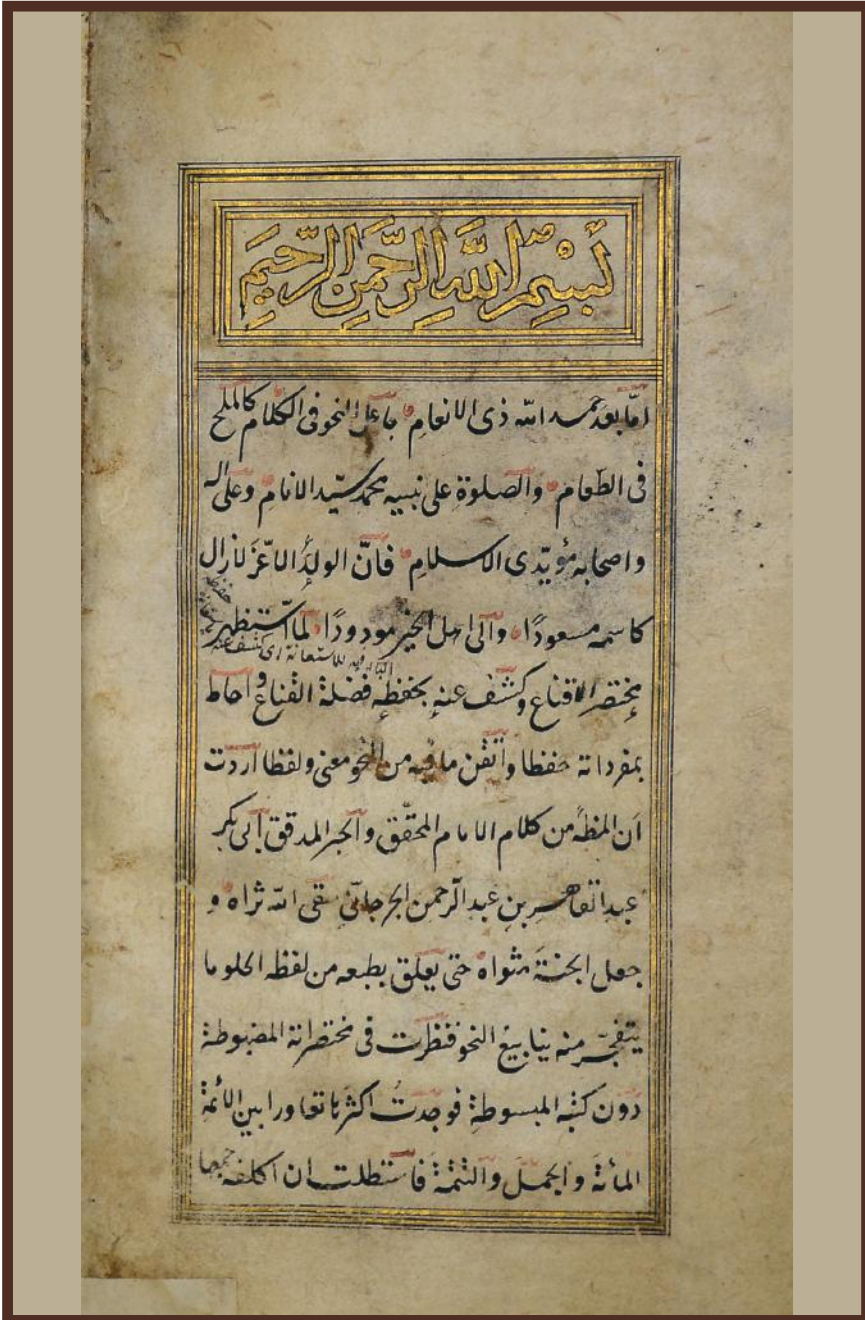 بَسْمِ اللّٰهِ الرَّحْمٰنِ الرَّحِيمِ
امّا بعد حمد الله ذى الانعام جاعل النحو فى الكلام كالملح
فى الطعام والصلوة على نبيه محمد سيّد الانام وعلى اله
واصحابه مؤيّدى الاسلام فانّ الولد الاعزّ لازال
كاسمه مسعودًا والى اهل الخير مودودًا لما استظهر
حفظه
الباء فيه للاستعانة اى كشف عنه
مختصر الاقناع وكشف عنه بحفظه فضلة القناع واحاط
بمفرداته حفظا واتقن ما فيه من النحو معنى ولفظا اردت
ان المظه من كلام الامام المحقّق والحبر المدقق ابى بكر
عبد القاهر بن عبد الرّحمن الجرجانى سقى الله ثراه و
جعل الجنة مثواه حتى يعلق بطبعه من لفظه الحلو ما
يتفجّر منه ينابيع النحو فنظرت فى مختصراته المضبوطة
دون كتبه المبسوطة فوجدت اكثرها تعاورا بين الائمة
المائة والجمل والتتمة فاستطلت ان اكلفه جمعها